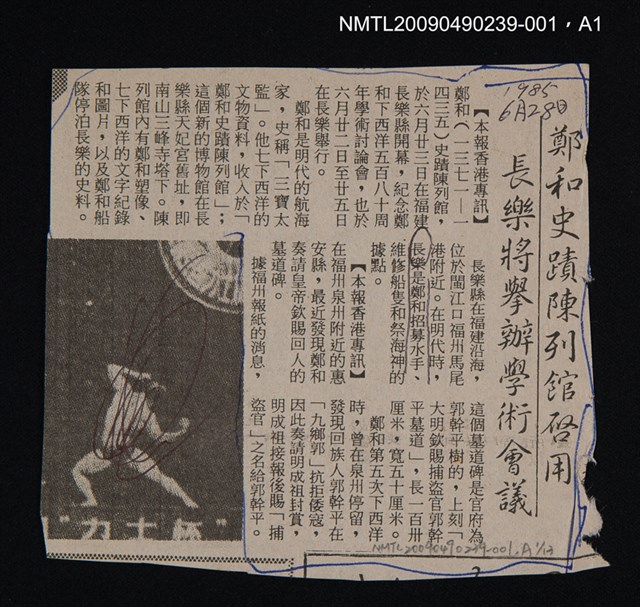 NMTL20090490239-001，A1
1985
6月28日
鄭和史蹟陳列館啓用
長樂將舉辦學術會議
【本報香港專訊】
鄭和（一三七一—一
四三五）史蹟陳列館，
於六月廿三日在福建
長樂縣開幕，紀念鄭
和下西洋五百八十周
年學術討論會，也於
六月廿二日至廿五日
在長樂舉行。
鄭和是明代的航海
家，史稱「三寶太
監」。他七下西洋的
文物資料，收入於「
鄭和史蹟陳列館」；
這個新的博物館在長
樂縣天妃宮舊址，即
南山三峰寺塔下。陳
列館內有鄭和塑像、
七下西洋的文字紀錄
和圖片，以及鄭和船
隊停泊長樂的史料。
長樂縣在福建沿海，
位於閩江口福州馬尾
港附近。在明代時，
長樂是鄭和招募水手、
維修船隻和祭海神的
據點。
【本報香港專訊】
在福州泉州附近的惠
安縣，最近發現鄭和
奏請皇帝欽賜回人的
墓道碑。
據福州報紙的消息，
這個墓道碑是官府為
郭幹平樹的，上刻「
大明欽賜捕盜官郭幹
平墓道」，長一百卅
厘米，寬五十厘米。
鄭和第五次下西洋
時，曾在泉州停留，
發現回族人郭幹平在
「九鄉郭」抗拒倭寇，
因此奏請明成祖封賞，
明成祖接報後賜「捕
盜官」之名給郭幹平。
力士杯
NMTL20090490239-001,A1/13